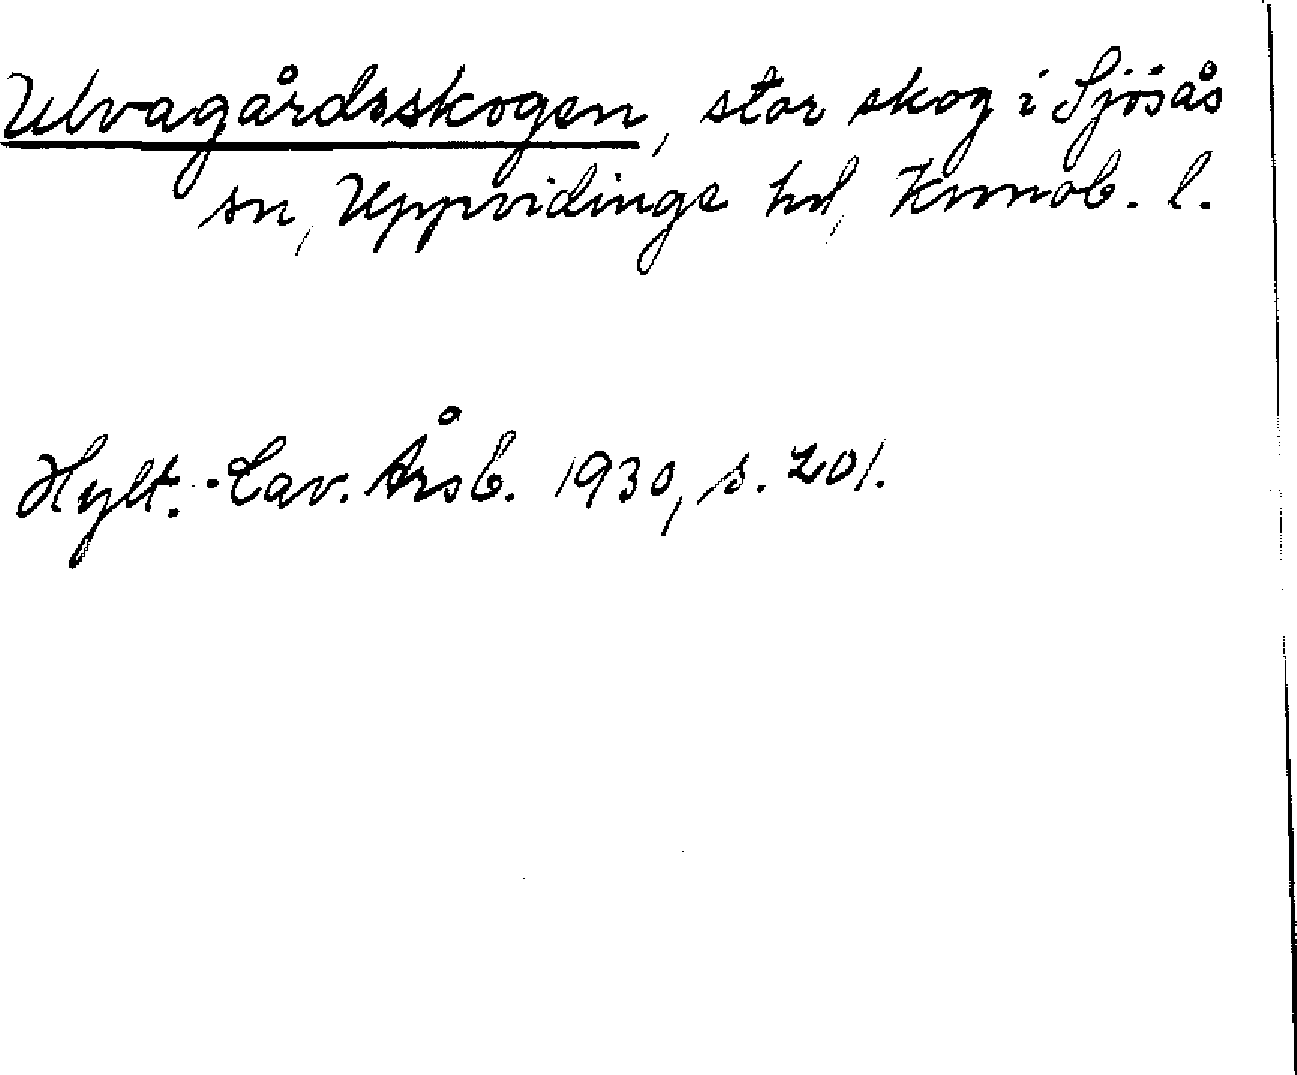 Ulvagårdsskogen, stor skog i Sjösås
sn, Uppvidinge hd, Kronob. l.
Hylt.-Cav. Årsb. 1930, s. 201.